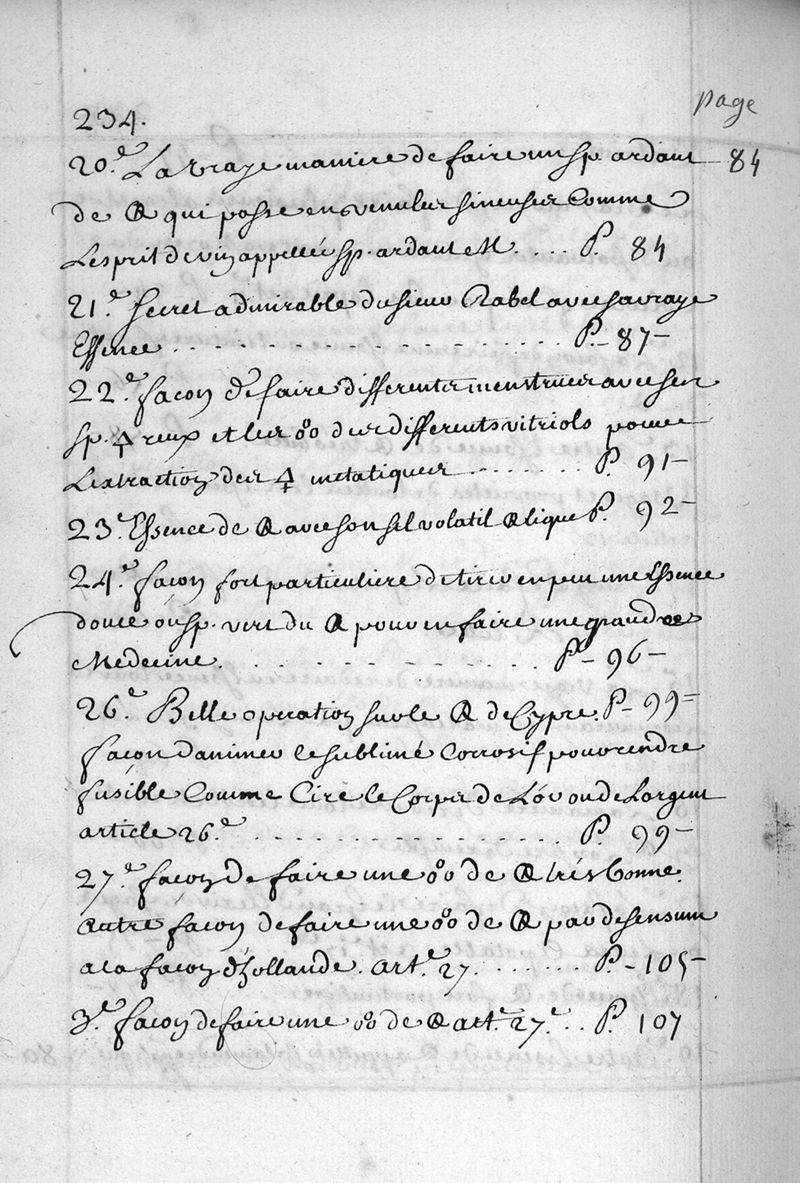 page
234.
20.e La vraye maniere de faire un sp. ardant 84
de 🜨 qui passe en veineuses Comme
Lesprit de vin appellée sp. ardant et P. 84
21.e Secret admirable du sieur Rabel avec sa vraye
Essence P. 87
22.e façon de faire differents menstrues avec ses
sp. 🜍 reux et les o°o des differents vitriols pour
Lextraction des 🜍 metaliques P. 91
23.e Essence de avec son sel volatil P. 92
24.e façon fort particuliere de tirer en peu une Essence
douce ou sp. vert du pour en faire une grande
Medecine P. 96
26.e Belle operation sur le de Cypre. P. 99
façon danimer le sublimé Corrosif pour rendre
fusible Comme Cire le Corps de Lor ou de Largent
article 26.e P. 99
27.e façon de faire une o°o de trés bonne.
autre façon de faire une o°o de par desensum
a la façon d'hollande. art.e 27. P. 105
3.e façon de faire une o°o de art.e 27.e P. 107